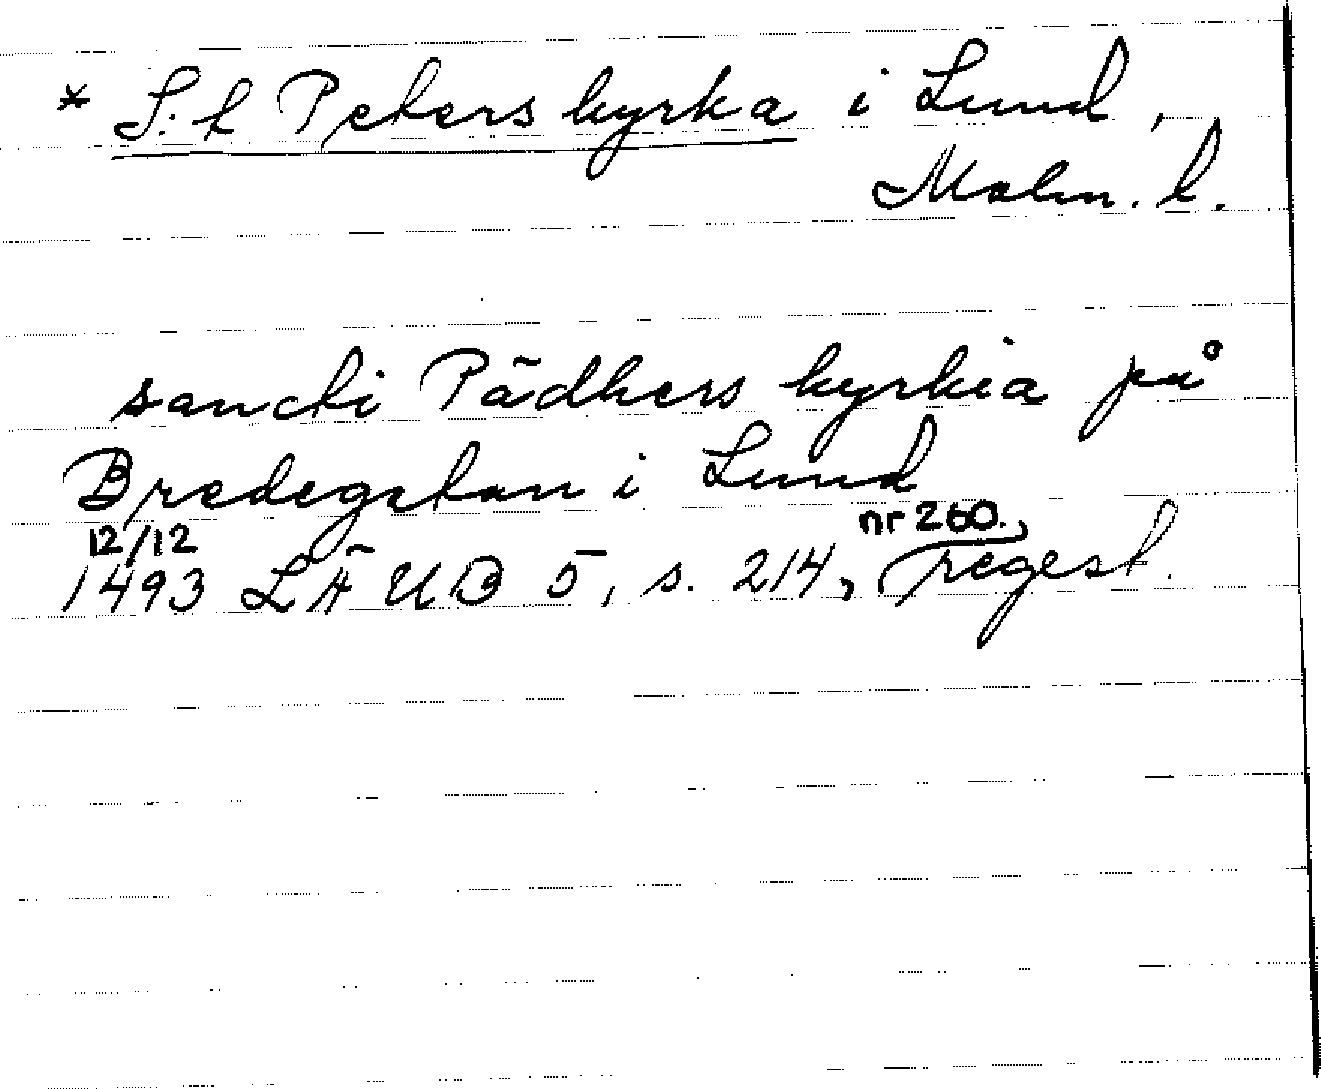 * S:t Peters kyrka i Lund,
Malm. l.
sancti Pädhers kyrkia på
Bredegatan i Lund
12/12 nr 260.,
1493 LÄUB 5, s. 214, regest.